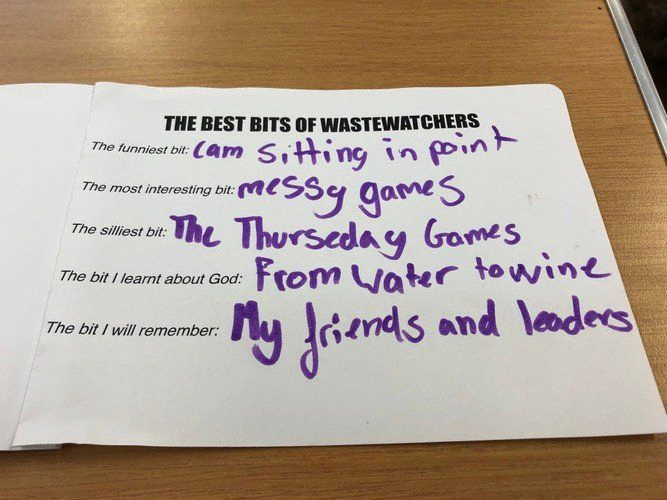 THE BEST BITS OF WASTEWATCHERS
The funniest bit: Cam sitting in point
The most interesting bit: messy games
The silliest bit: The Thurseday Games
The bit I learnt about God: From Water to wine
The bit I will remember: My friends and leaders